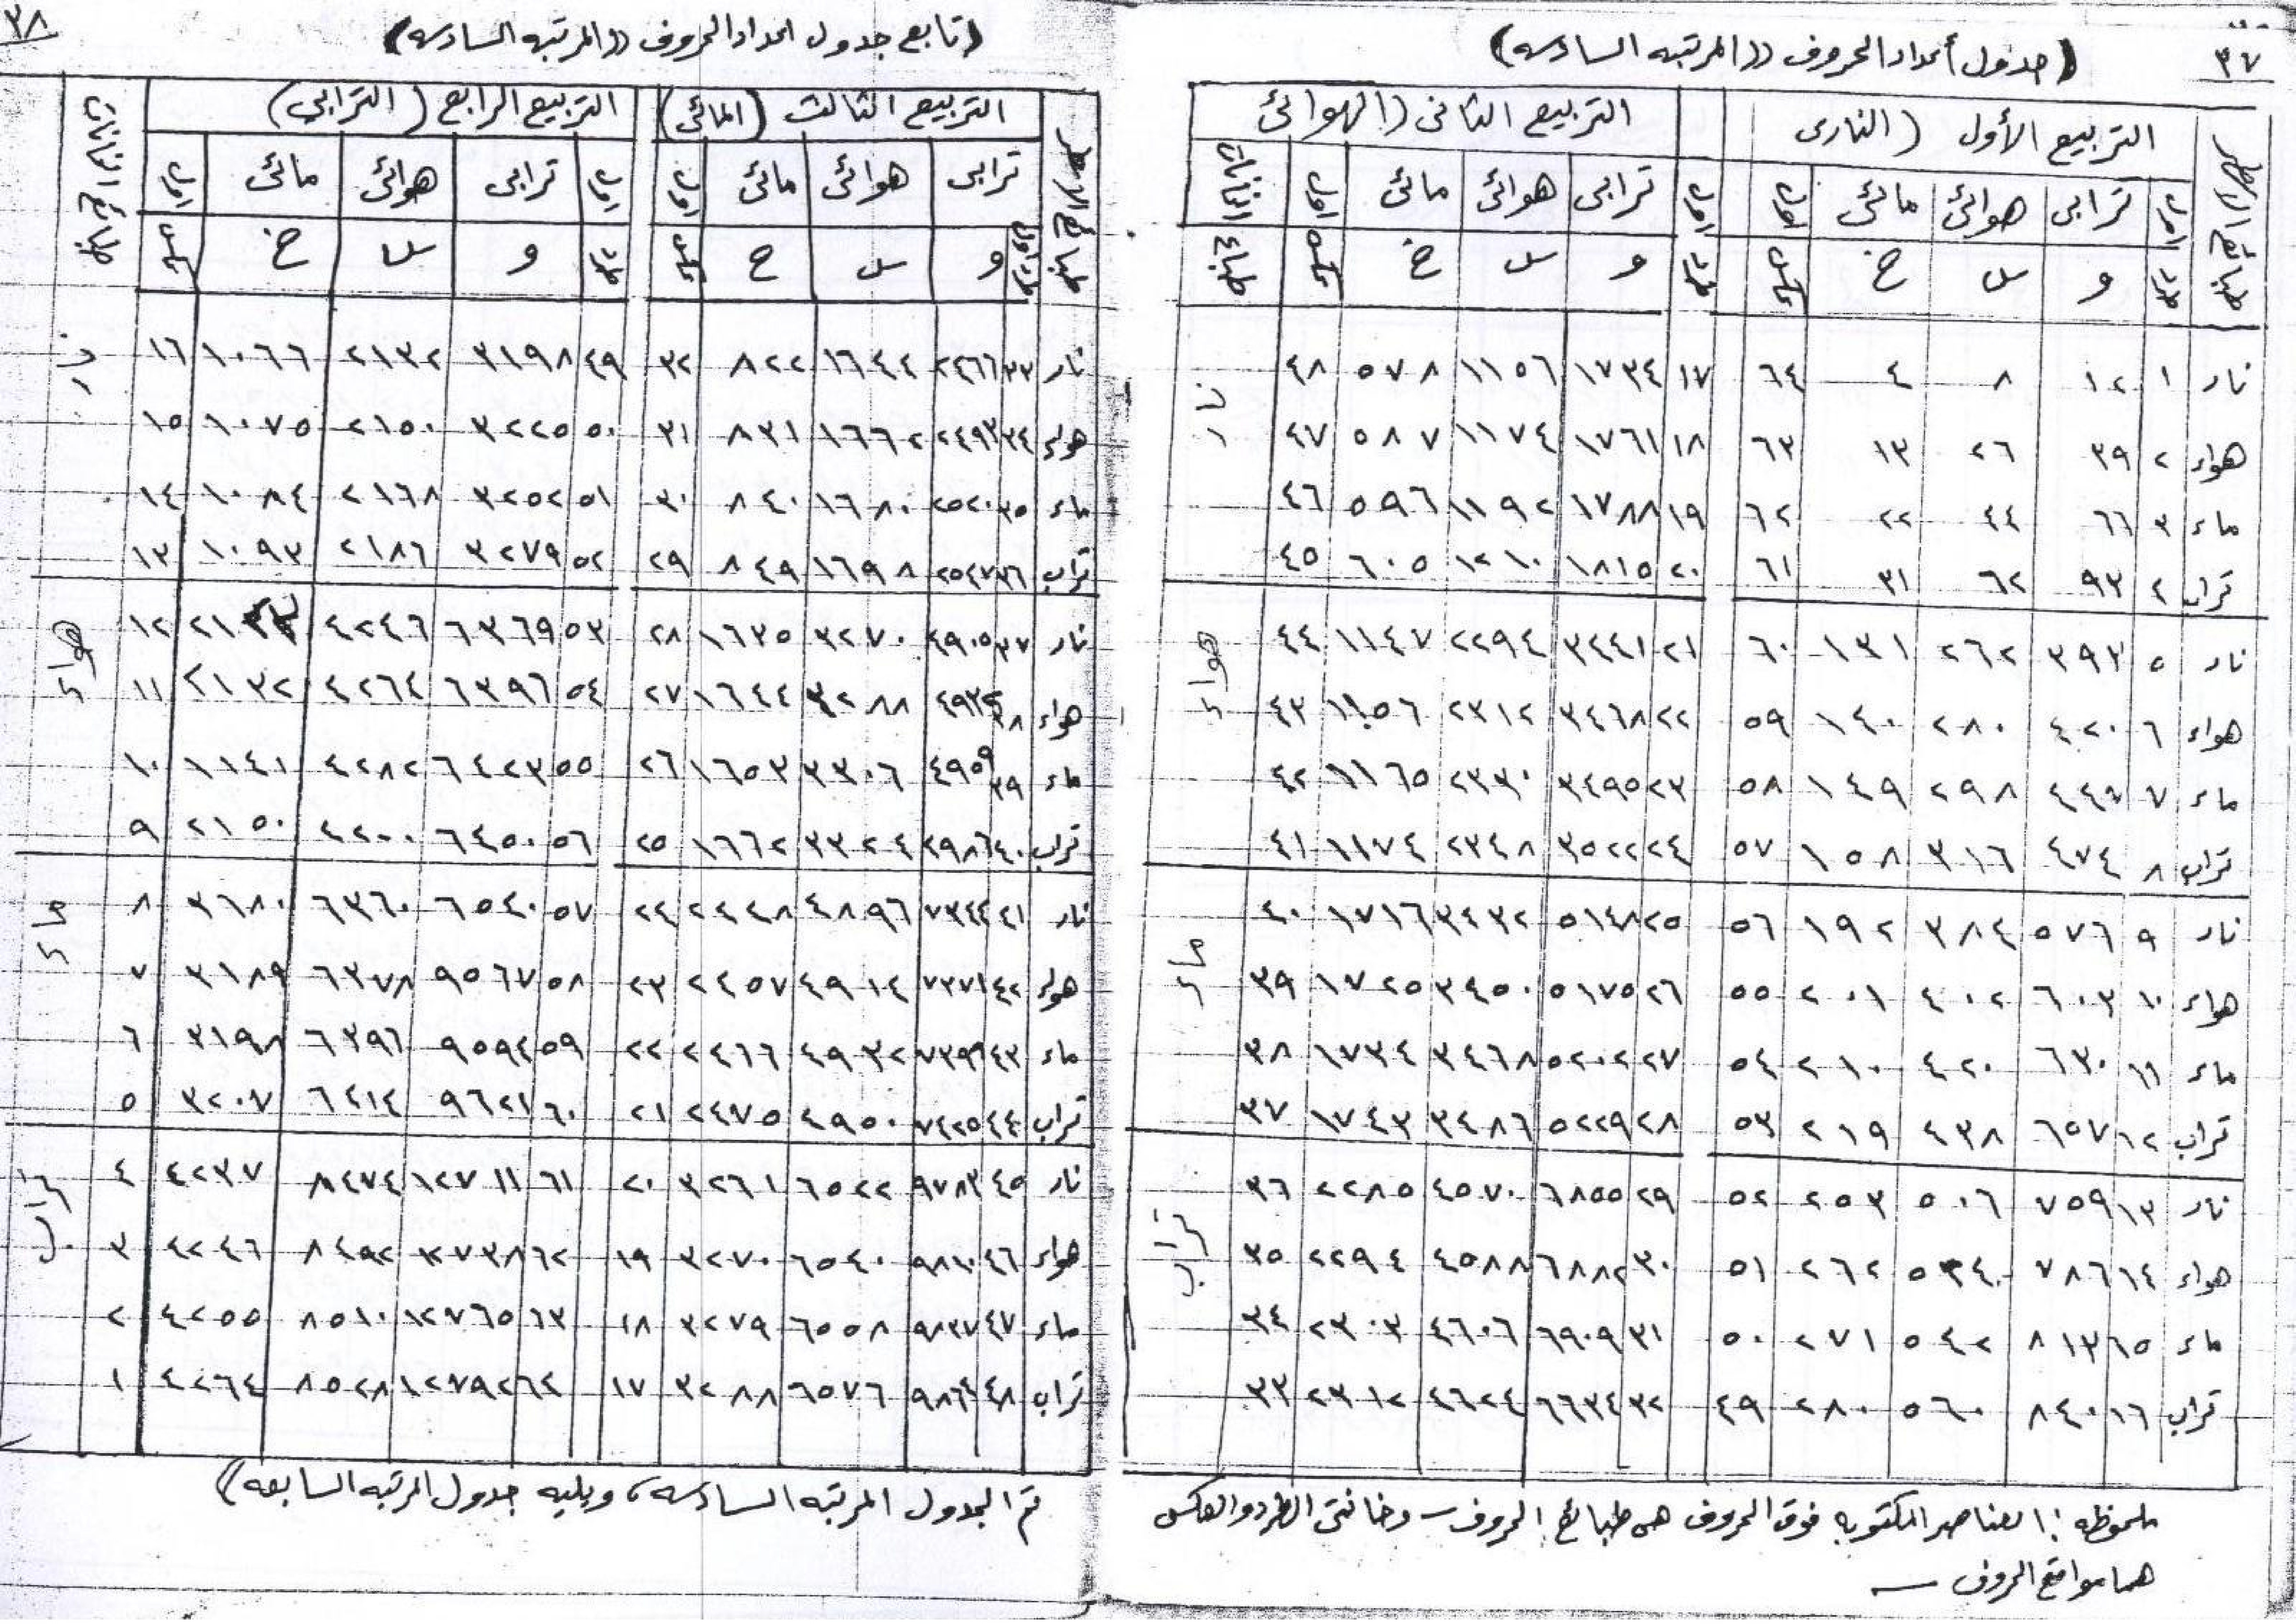 ٣٧
(جدول أعداد الحروف ((المرتبه السادسه)
طبائع الأسطر | التربيع الأول (النارى | التربيع الثانى (الهوائى | طبائع الأثلاث
ترابى هوائى مائى | ترابى هوائى مائى
طرد و س خ عكس | طرد و س خ عكس
نار ١ ١٢ ٨ ٤ ٦٤ ١٧ ١٧٣٤ ١١٥٦ ٥٧٨ ٤٨ نار
هواء ٢ ٣٩ ٢٦ ١٣ ٦٣ ١٨ ١٧٦١ ١١٧٤ ٥٨٧ ٤٧
ماء ٣ ٦٦ ٤٤ ٢٢ ٦٢ ١٩ ١٧٨٨ ١١٩٢ ٥٩٦ ٤٦
تراب ٤ ٩٣ ٦٢ ٣١ ٦١ ٢٠ ١٨١٥ ١٢١٠ ٦٠٥ ٤٥
نار ٥ ٣٩٣ ٢٦٢ ١٣١ ٦٠ ٢١ ٣٤٤١ ٢٢٩٤ ١١٤٧ ٤٤ هواء
هواء ٦ ٤٢٠ ٢٨٠ ١٤٠ ٥٩ ٢٢ ٣٤٦٨ ٢٣١٢ ١١٥٦ ٤٣
ماء ٧ ٤٤٧ ٢٩٨ ١٤٩ ٥٨ ٢٣ ٣٤٩٥ ٢٣٣٠ ١١٦٥ ٤٢
تراب ٨ ٤٧٤ ٣١٦ ١٥٨ ٥٧ ٢٤ ٣٥٢٢ ٢٣٤٨ ١١٧٤ ٤١
نار ٩ ٥٧٦ ٣٨٤ ١٩٢ ٥٦ ٢٥ ٥١٤٨ ٣٤٣٢ ١٧١٦ ٤٠ ماء
هواء ١٠ ٦٠٣ ٤٠٢ ٢٠١ ٥٥ ٢٦ ٥١٧٥ ٣٤٥٠ ١٧٢٥ ٣٩
ماء ١١ ٦٣٠ ٤٢٠ ٢١٠ ٥٤ ٢٧ ٥٢٠٢ ٣٤٦٨ ١٧٣٤ ٣٨
تراب ١٢ ٦٥٧ ٤٣٨ ٢١٩ ٥٣ ٢٨ ٥٢٢٩ ٣٤٨٦ ١٧٤٣ ٣٧
نار ١٣ ٧٥٩ ٥٠٦ ٢٥٣ ٥٢ ٢٩ ٦٨٥٥ ٤٥٧٠ ٢٢٨٥ ٣٦ تراب
هواء ١٤ ٧٨٦ ٥٣٤ ٢٦٢ ٥١ ٣٠ ٦٨٨٢ ٤٥٨٨ ٢٢٩٤ ٣٥
ماء ١٥ ٨١٣ ٥٤٢ ٢٧١ ٥٠ ٣١ ٦٩٠٩ ٤٦٠٦ ٢٣٠٣ ٣٤
تراب ١٦ ٨٤٠ ٥٦٠ ٢٨٠ ٤٩ ٣٢ ٦٦٣٤ ٤٦٢٤ ٢٣١٢ ٣٣
ملحوظه : العناصر المكتوبه فوق الحروف هى طبائع الحروف – وخانتى الطرد والعكس
هما مواقع الحروف –
٣٨
(تابع جدول اعداد الحروف ((المرتبه السادسه)
التربيع الثالث (المائى) | التربيع الرابع (الترابى)
ترابى هوائى مائى | ترابى هوائى مائى
و س خ عكس | طرد و س خ عكس
نار ٣٣ ٢٤٦٦ ١٦٤٤ ٨٢٢ ٣٢ ٤٩ ٣١٩٨ ٢١٣٢ ١٠٦٦ ١٦ نار
هواء ٣٤ ٢٤٩٣ ١٦٦٢ ٨٣١ ٣١ ٥٠ ٣٢٢٥ ٢١٥٠ ١٠٧٥ ١٥
ماء ٣٥ ٢٥٢٠ ١٦٨٠ ٨٤٠ ٣٠ ٥١ ٣٢٥٢ ٢١٦٨ ١٠٨٤ ١٤
تراب ٣٦ ٢٥٤٧ ١٦٩٨ ٨٤٩ ٢٩ ٥٢ ٣٢٧٩ ٢١٨٦ ١٠٩٣ ١٣
نار ٣٧ ٤٩٠٥ ٣٢٧٠ ١٦٣٥ ٢٨ ٥٣ ٦٣٦٩ ٤٢٤٦ ١٢ هواء
هواء ٣٨ ٤٩٣٢ ٣٢٨٨ ١٦٤٤ ٢٧ ٥٤ ٦٣٩٦ ٤٢٦٤ ٢١٣٢ ١١
ماء ٣٩ ٤٩٥٩ ٣٣٠٦ ١٦٥٣ ٢٦ ٥٥ ٦٤٢٣ ٤٢٨٢ ١١٤١ ١٠
تراب ٤٠ ٤٩٨٦ ٣٣٢٤ ١٦٦٢ ٢٥ ٥٦ ٦٤٥٠ ٤٢٠٠ ٢١٥٠ ٩
نار ٤١ ٧٣٤٤ ٤٨٩٦ ٢٤٤٨ ٢٤ ٥٧ ٦٥٤٠ ٦٣٦٠ ٣٦٨٠ ٨ ماء
هواء ٤٢ ٧٣٧١ ٤٩١٤ ٢٤٥٧ ٢٣ ٥٨ ٩٥٦٧ ٦٣٧٨ ٣١٨٩ ٧
ماء ٤٣ ٧٣٩٩ ٤٩٣٢ ٢٤٦٦ ٢٢ ٥٩ ٩٥٩٤ ٦٣٩٦ ٣١٩٨ ٦
تراب ٤٤ ٧٤٢٥ ٤٩٥٠ ٢٤٧٥ ٢١ ٦٠ ٩٦٢١ ٦٤١٤ ٣٢٠٧ ٥
نار ٤٥ ٩٧٨٣ ٦٥٢٢ ٣٢٦١ ٢٠ ٦١ ١٢٧١١ ٨٤٧٤ ٤٢٣٧ ٤ تراب
هواء ٤٦ ٩٨١٠ ٦٥٤٠ ٣٢٧٠ ١٩ ٦٢ ١٢٧٣٨ ٨٤٩٢ ٤٢٤٦ ٣
ماء ٤٧ ٩٨٣٧ ٦٥٥٨ ٣٢٧٩ ١٨ ٦٣ ١٢٧٦٥ ٨٥١٠ ٤٢٥٥ ٢
تراب ٤٨ ٩٨٦٤ ٦٥٧٦ ٣٢٨٨ ١٧ ٦٤ ١٢٧٩٢ ٨٥٢٨ ٤٢٦٤ ١
تم الجدول المرتبه السادسه، ويليه جدول المرتبه السابعه)